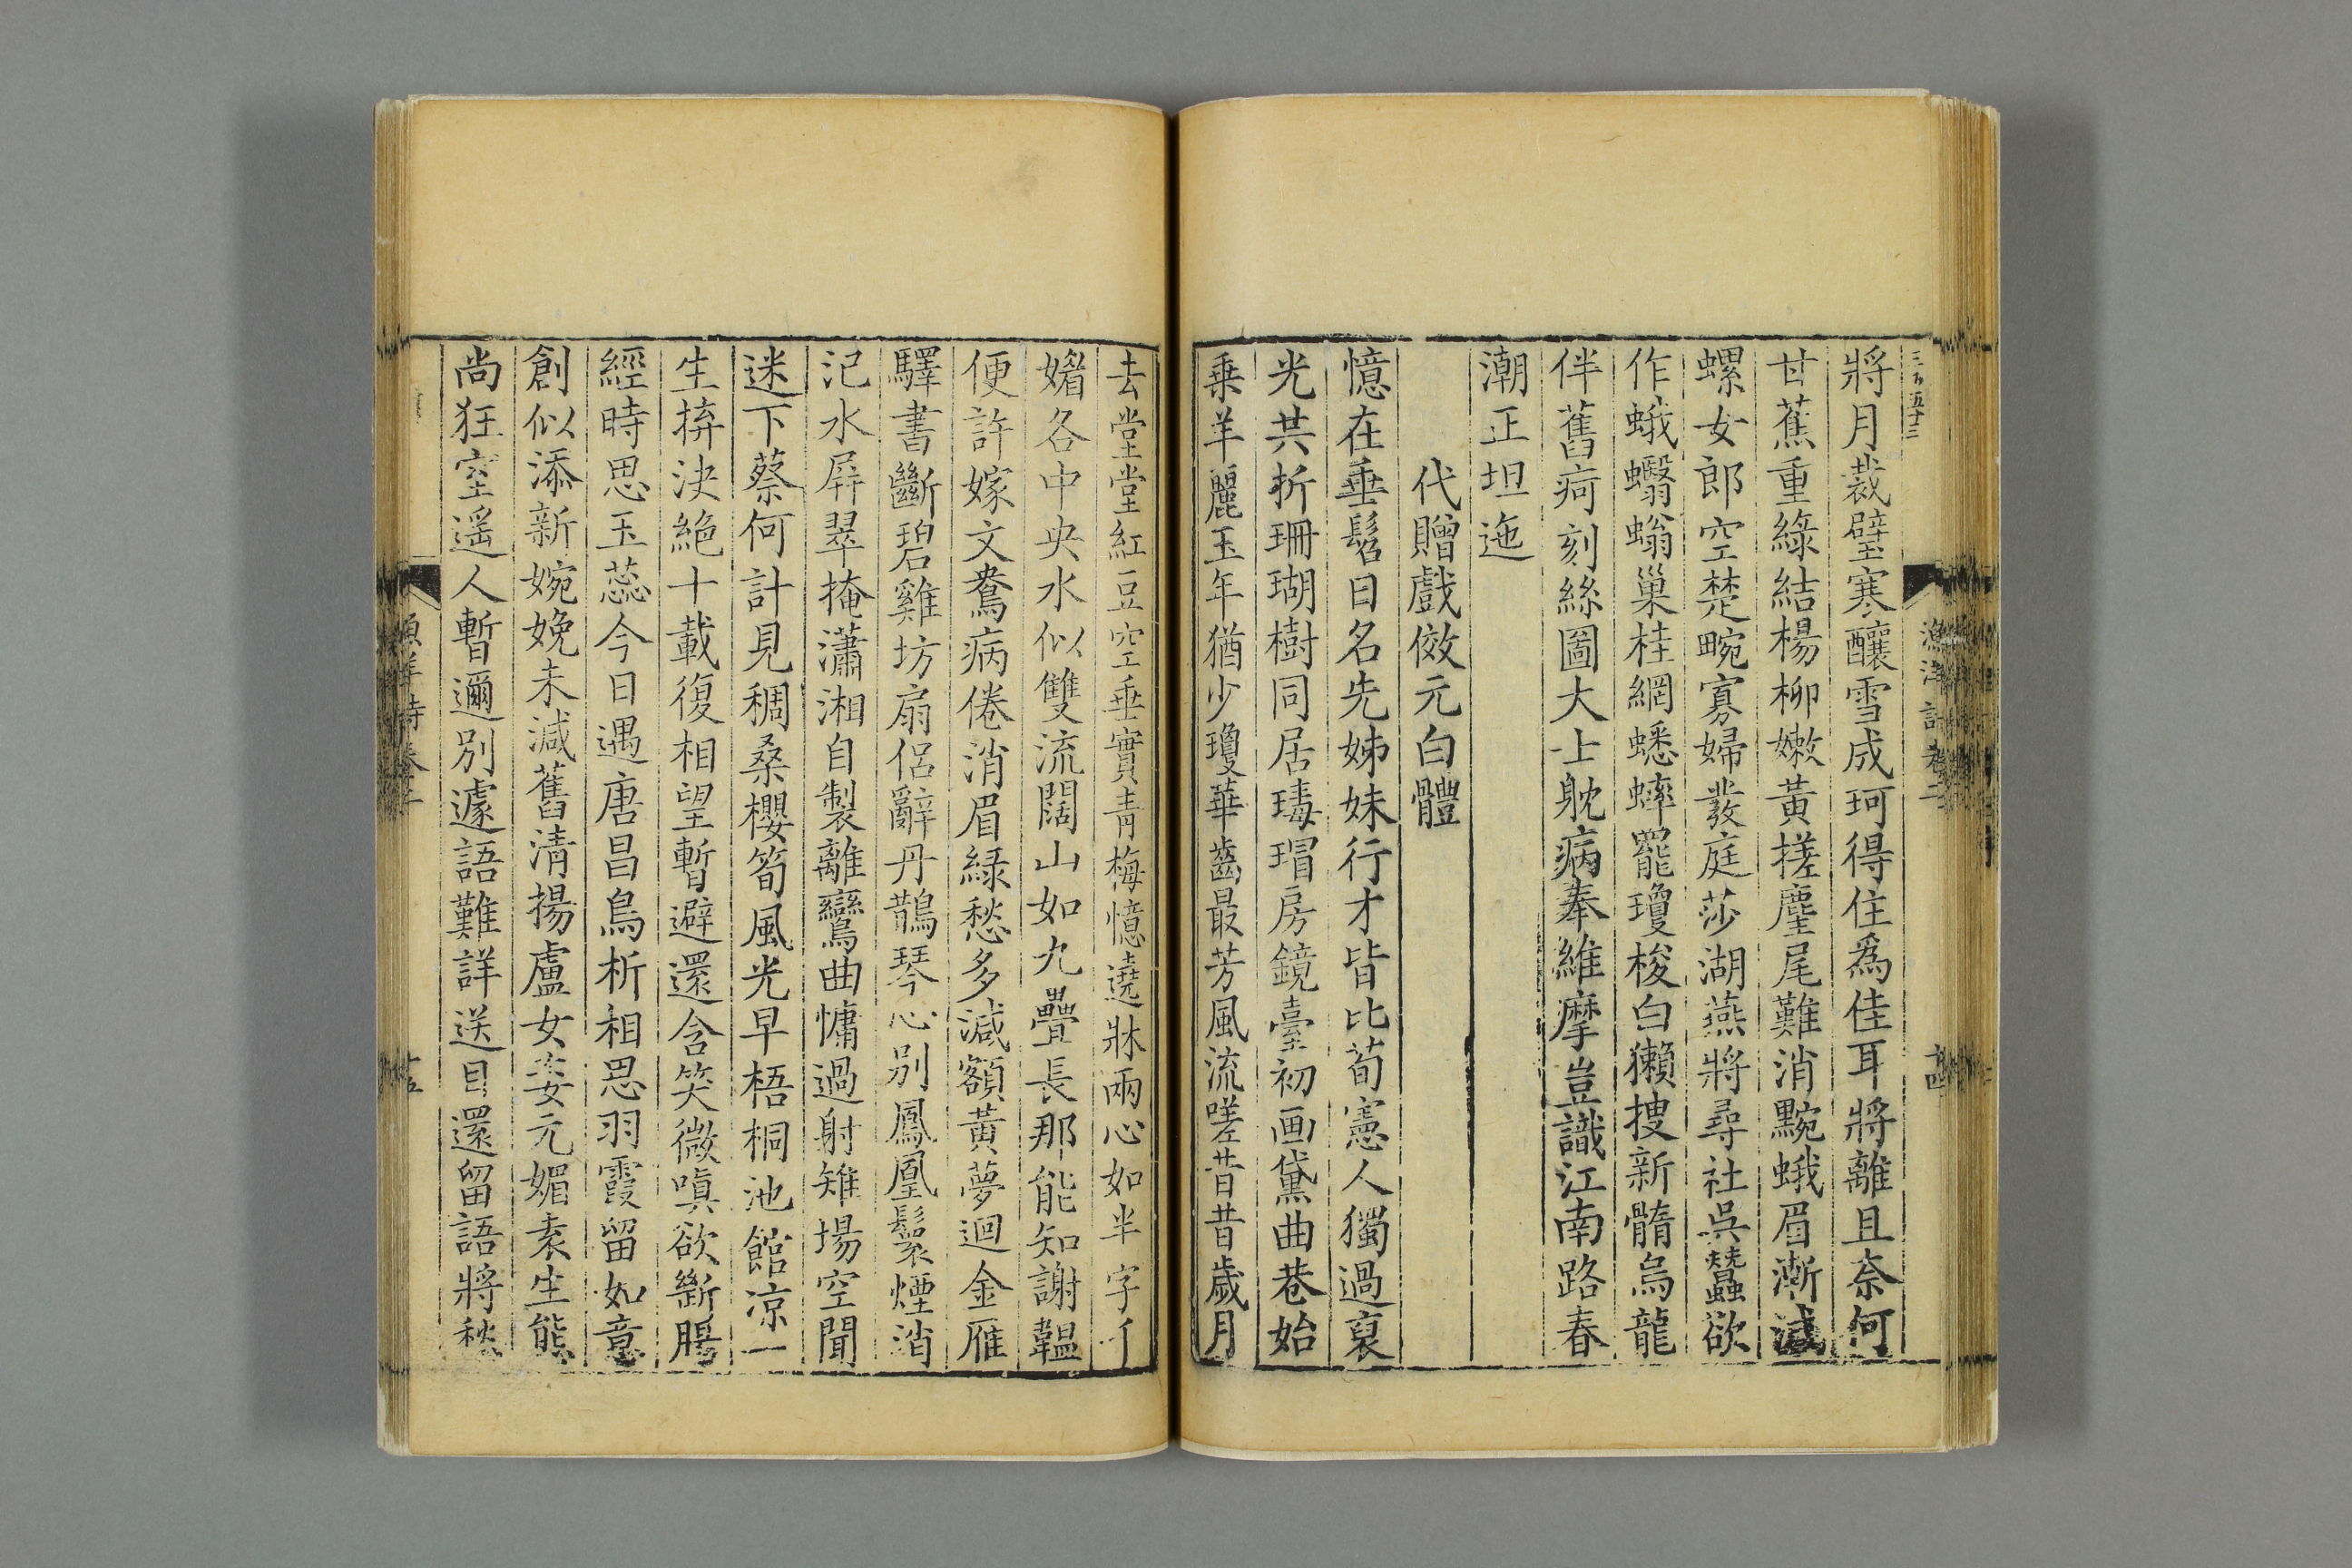 三百五十三
將月裁璧寒釀雪成珂得住爲佳耳將離且奈何
甘蕉重綠結楊柳嫩黃搓麈尾難消黦蛾眉漸減
螺女郎空楚畹寡婦叢庭莎湖燕將尋社吳蠶欲
作蛾蠮螉巢桂網蟋蟀罷瓊梭白獺搜新髓烏龍
伴舊疴刻絲圖大士躭病奉維摩豈識江南路春
潮正坦迤
代贈戲倣元白體
憶在垂髫日名先姊妹行才皆比荀憲人獨過裒
光共折珊瑚樹同居瑇瑁房鏡臺初画黛曲巷始
乗羊麗玉年猶少瓊華齒最芳風流嗟昔昔歲月
漁洋詩卷二
十四
去堂堂紅豆空垂實青梅憶遶牀兩心如半字了
媚各中央水似雙流闊山如九疊長那能知謝韞
便許嫁文鴦病倦消眉綠愁多減額黃夢迴金雁
驛書斷碧雞坊扇侶辭丹鵲琴心別鳳凰鬟煙消
汜水屏翠掩瀟湘自製離鸞曲慵過射雉場空聞
迷下蔡何計見稠桑櫻筍風光早梧桐池館凉一
生拚決絕十載復相望暫避還含笑微嗔欲斷腸
經時思玉蕊今日遇唐昌鳥析相思羽霞留如意
創似添新婉娩未減舊清揚盧女姜元媚素生態
尚狂空遥人暫邇別遽語難詳送目還留語將愁
漁洋詩卷二
十五